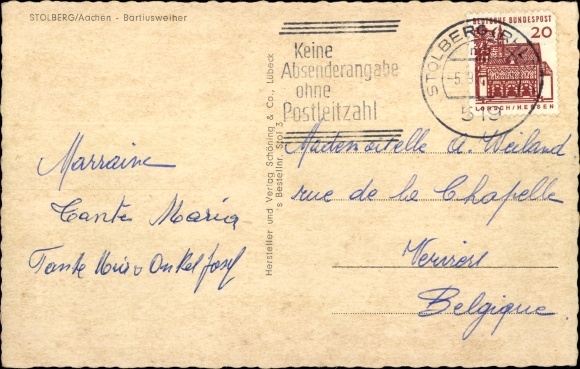 STOLBERG/Aachen - Bartiusweiher
Keine
Absenderangabe
ohne
Postleitzahl
STOLBERG (RHL)
-5.9.
519
DEUTSCHE BUNDESPOST
20
LORSCH/HESSEN
Hersteller und Verlag Schöning & Co., Lübeck
S Bestellnr. Stol 3
Marraine
Tante Maria
Tante und Onkel Josef
Mademoiselle A. Weiland
rue de la Chapelle
Verviers
Belgique.